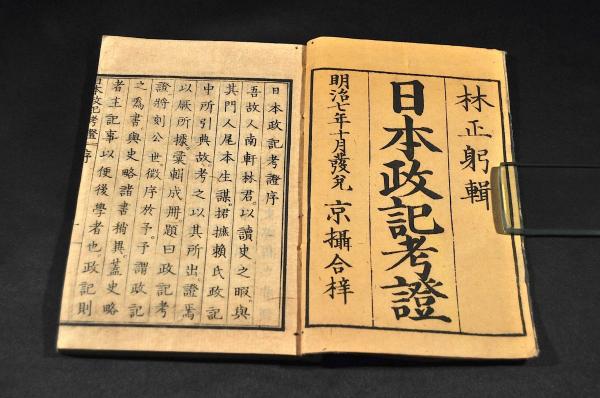 林正躬輯
日本政記考證
明治七年十月發兌 京攝合梓
日本政記考證序
吾故人南軒林君以讀史之暇與
其門人尾本生謀捃摭賴氏政記
中所引典故考之以其所出證焉
以厥所據彙輯成册題曰政記考
證將刻公世徵序於予予謂政記
之為書與史略諸書稍異蓋史略
者主記事以便後學者也政記則
日本政記考證 序